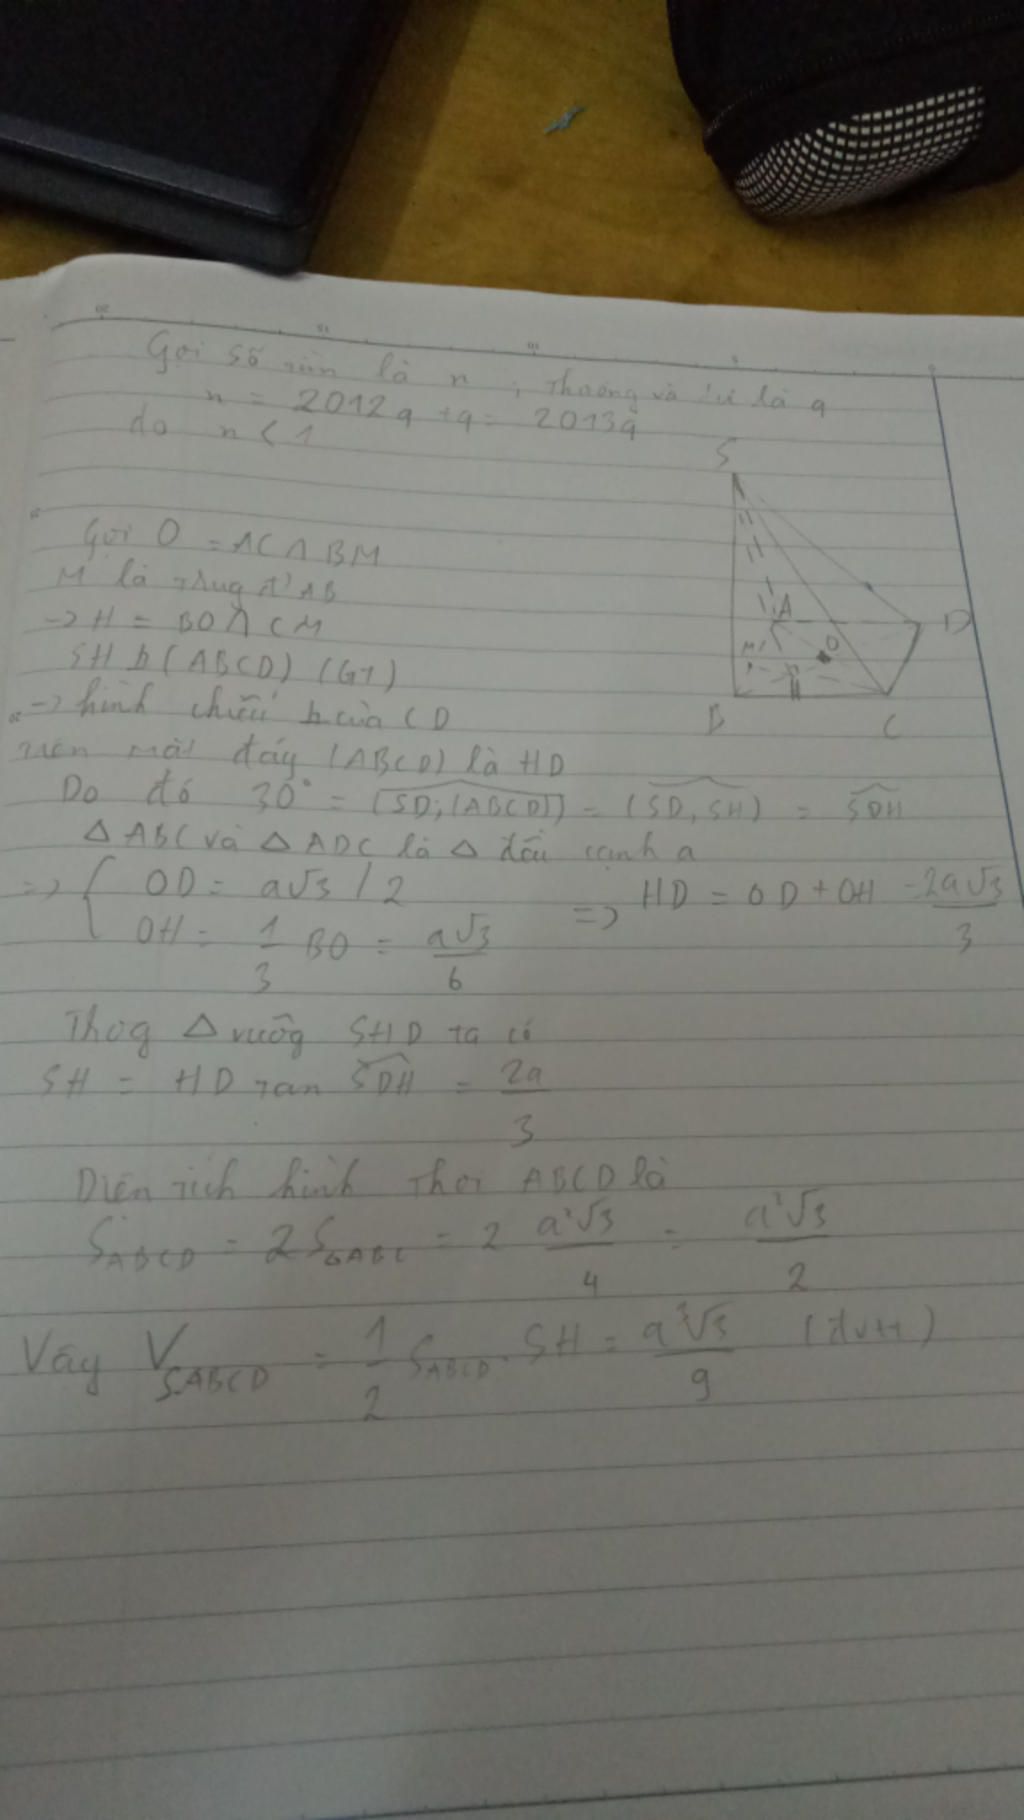 Gọi số n là n ; Thương và dư là q
n = 2012q + q = 2013q
do n < 1
S
A
D
M
O
H
B
C
Gọi O = AC ∩ BM
M là trug đ' AB
-> H = BO ∩ CM
SH h (ABCD) (GT)
-> hình chiếu h của CD
trên mặt đáy (ABCD) là HD
Do đó 30° = (SD; (ABCD)) = (SD, SH) = SDH
Δ ABC và Δ ADC là Δ đều cạnh a
=> { OD = a√3 / 2
OH = 1/3 BO = a√3/6
=> HD = OD + OH = 2a√3/3
Thog Δ vuôg SHD ta có
SH = HD tan SDH = 2a/3
Diện tích hình thoi ABCD là
S ABCD = 2 S ΔABC = 2 a²√3/4 = a²√3/2
Vậy V S.ABCD = 1/2 S ABCD . SH = a³√3/9 (đvtt)